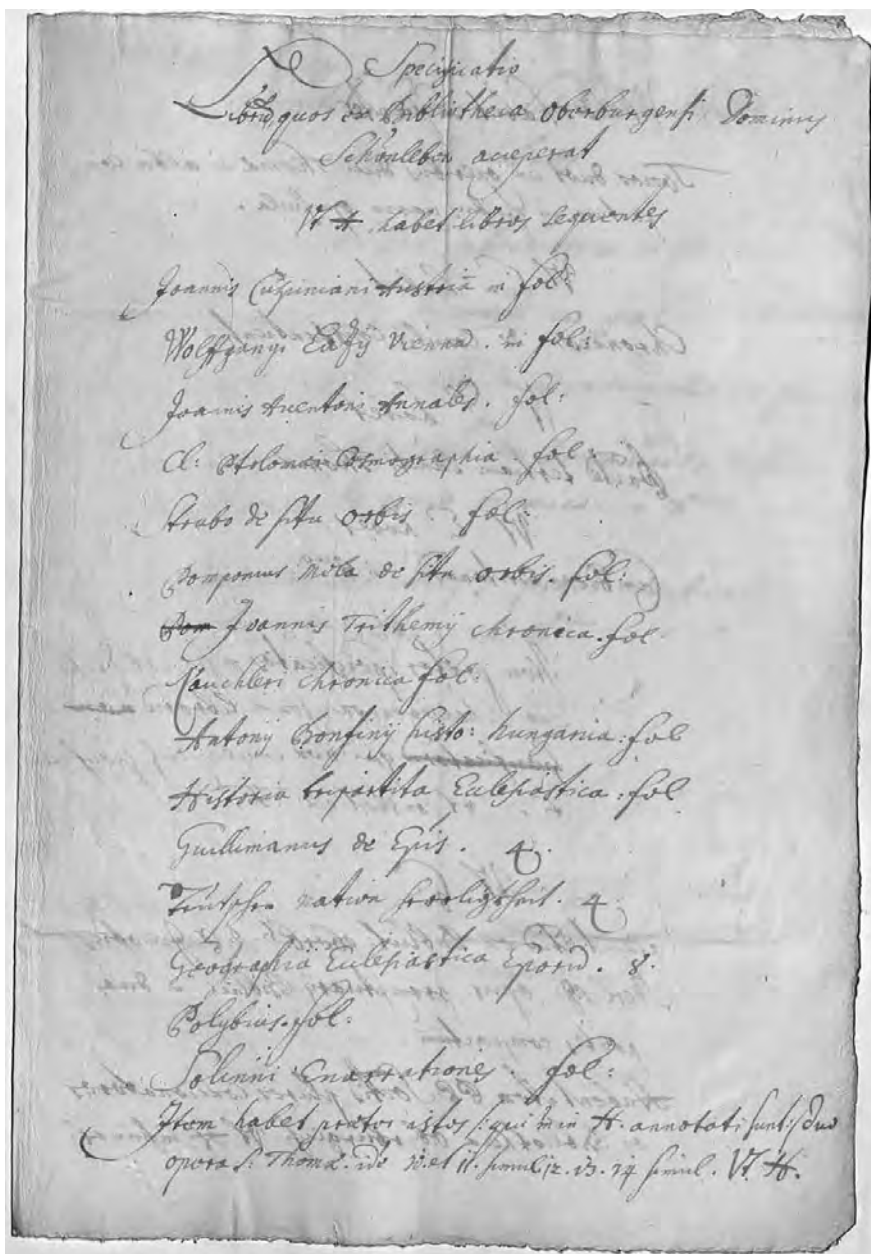 Specificatio
Librorũ, quos ex Bibliotheca Oberburgensi Dominus
Schönleben acceperat
Vt H habet libros sequentes
Joannis Cuspiniani Austria in fol:
Wolffgangi Lazij Vienna. in fol:
Joannis Auentini Annales. fol:
Cl: Ptolomei Cosmographia. fol:
Strabo de situ orbis. fol:
Pomponius Mela de situ orbis. fol:
Pom Joannis Trithemij chronica. fol
Nauchleri chronica fol:
Antonij Bonfinij histo: Hungaria: fol
Historia tripartita Ecclesiastica: fol
Guillimanus de Epis. 4.
Teutscher nation herrligkheit. 4.
Geographia Ecclesiastica Eporũ. 8.
Polybius. fol:
Solinni Enarrationes. fol:
Item habet praeter istos /: qui in H. annotati sunt :/ duo
opera S: Thomae. 10. et 11. simul 12. 13. 14 simul. Vt H.